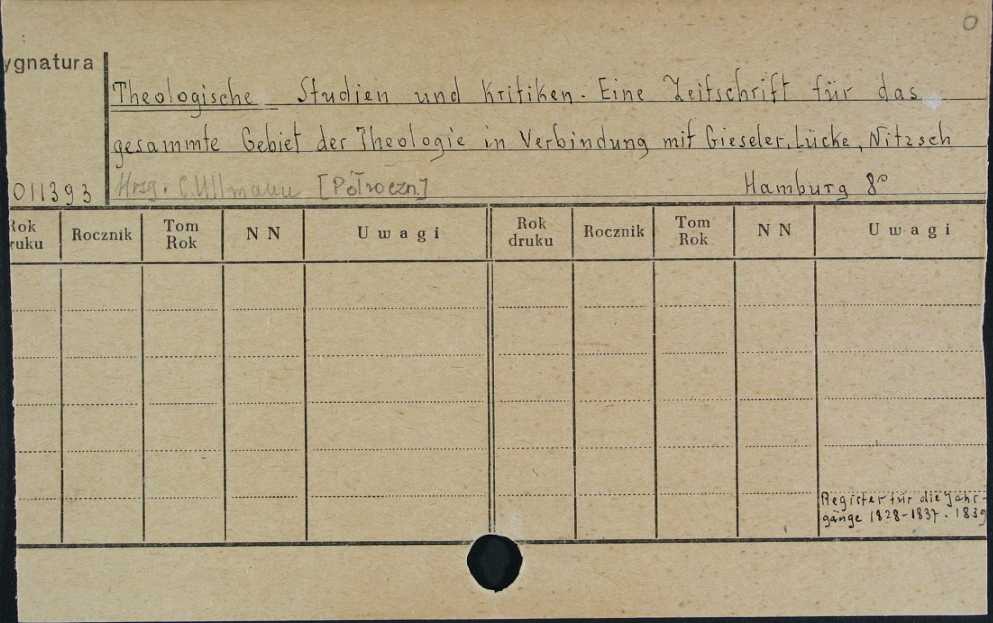 ygnatura
Theologische Studien und Kritiken. Eine Zeitschrift für das
gesammte Gebiet der Theologie in Verbindung mit Gieseler, Lücke, Nitzsch
011393 Hrsg. C. Ullmann [Półroczn.] Hamburg 8°
Rok druku Rocznik Tom Rok N N Uwagi Rok druku Rocznik Tom Rok N N Uwagi
Register für die Jahr-
gänge 1828-1837. 1839